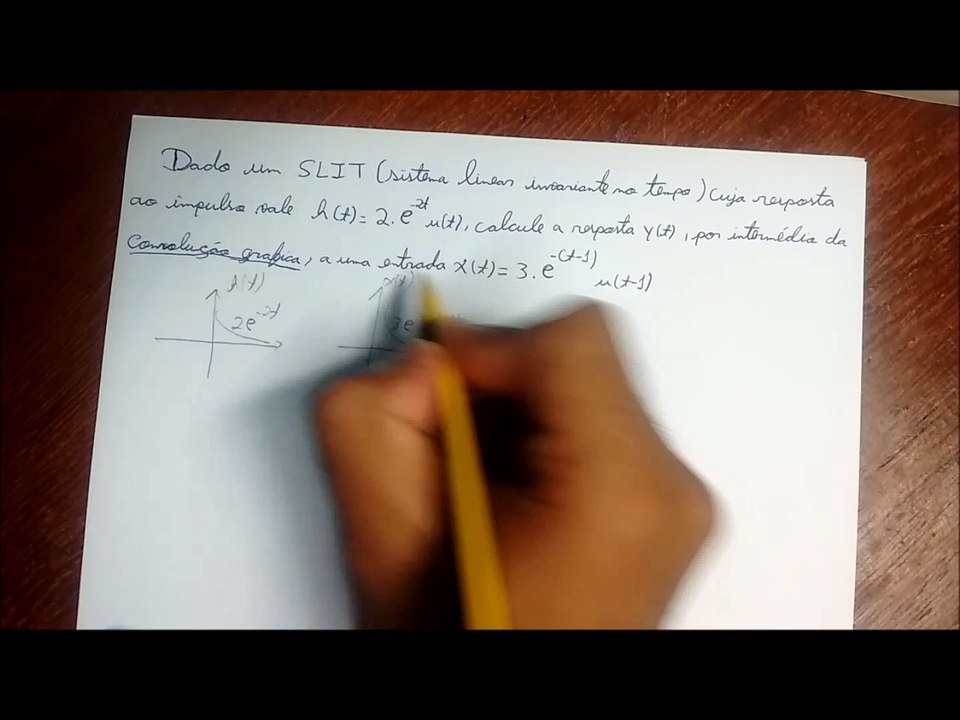 Dado um SLIT (sistema linear invariante no tempo) cuja resposta
ao impulso vale h(t)= 2.e^-2t u(t), calcule a resposta y(t), por intermédio da
Convolução grafica, a uma entrada x(t)= 3.e^-(t-1) u(t-1)
h(t) x(t)
2e^-2t 3e